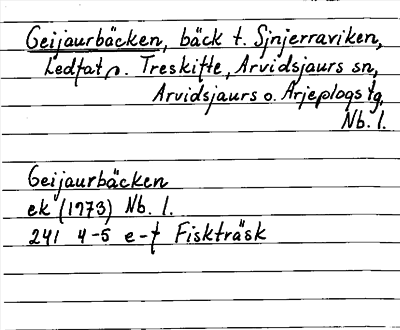 Geijaurbäcken, bäck t. Sjnjerraviken,
Ledfat o. Treskifte, Arvidsjaurs sn,
Arvidsjaurs o. Arjeplogs tg,
Nb. l.
Geijaurbäcken
ek (1973) Nb. l.
241 4-5 e-f Fiskträsk